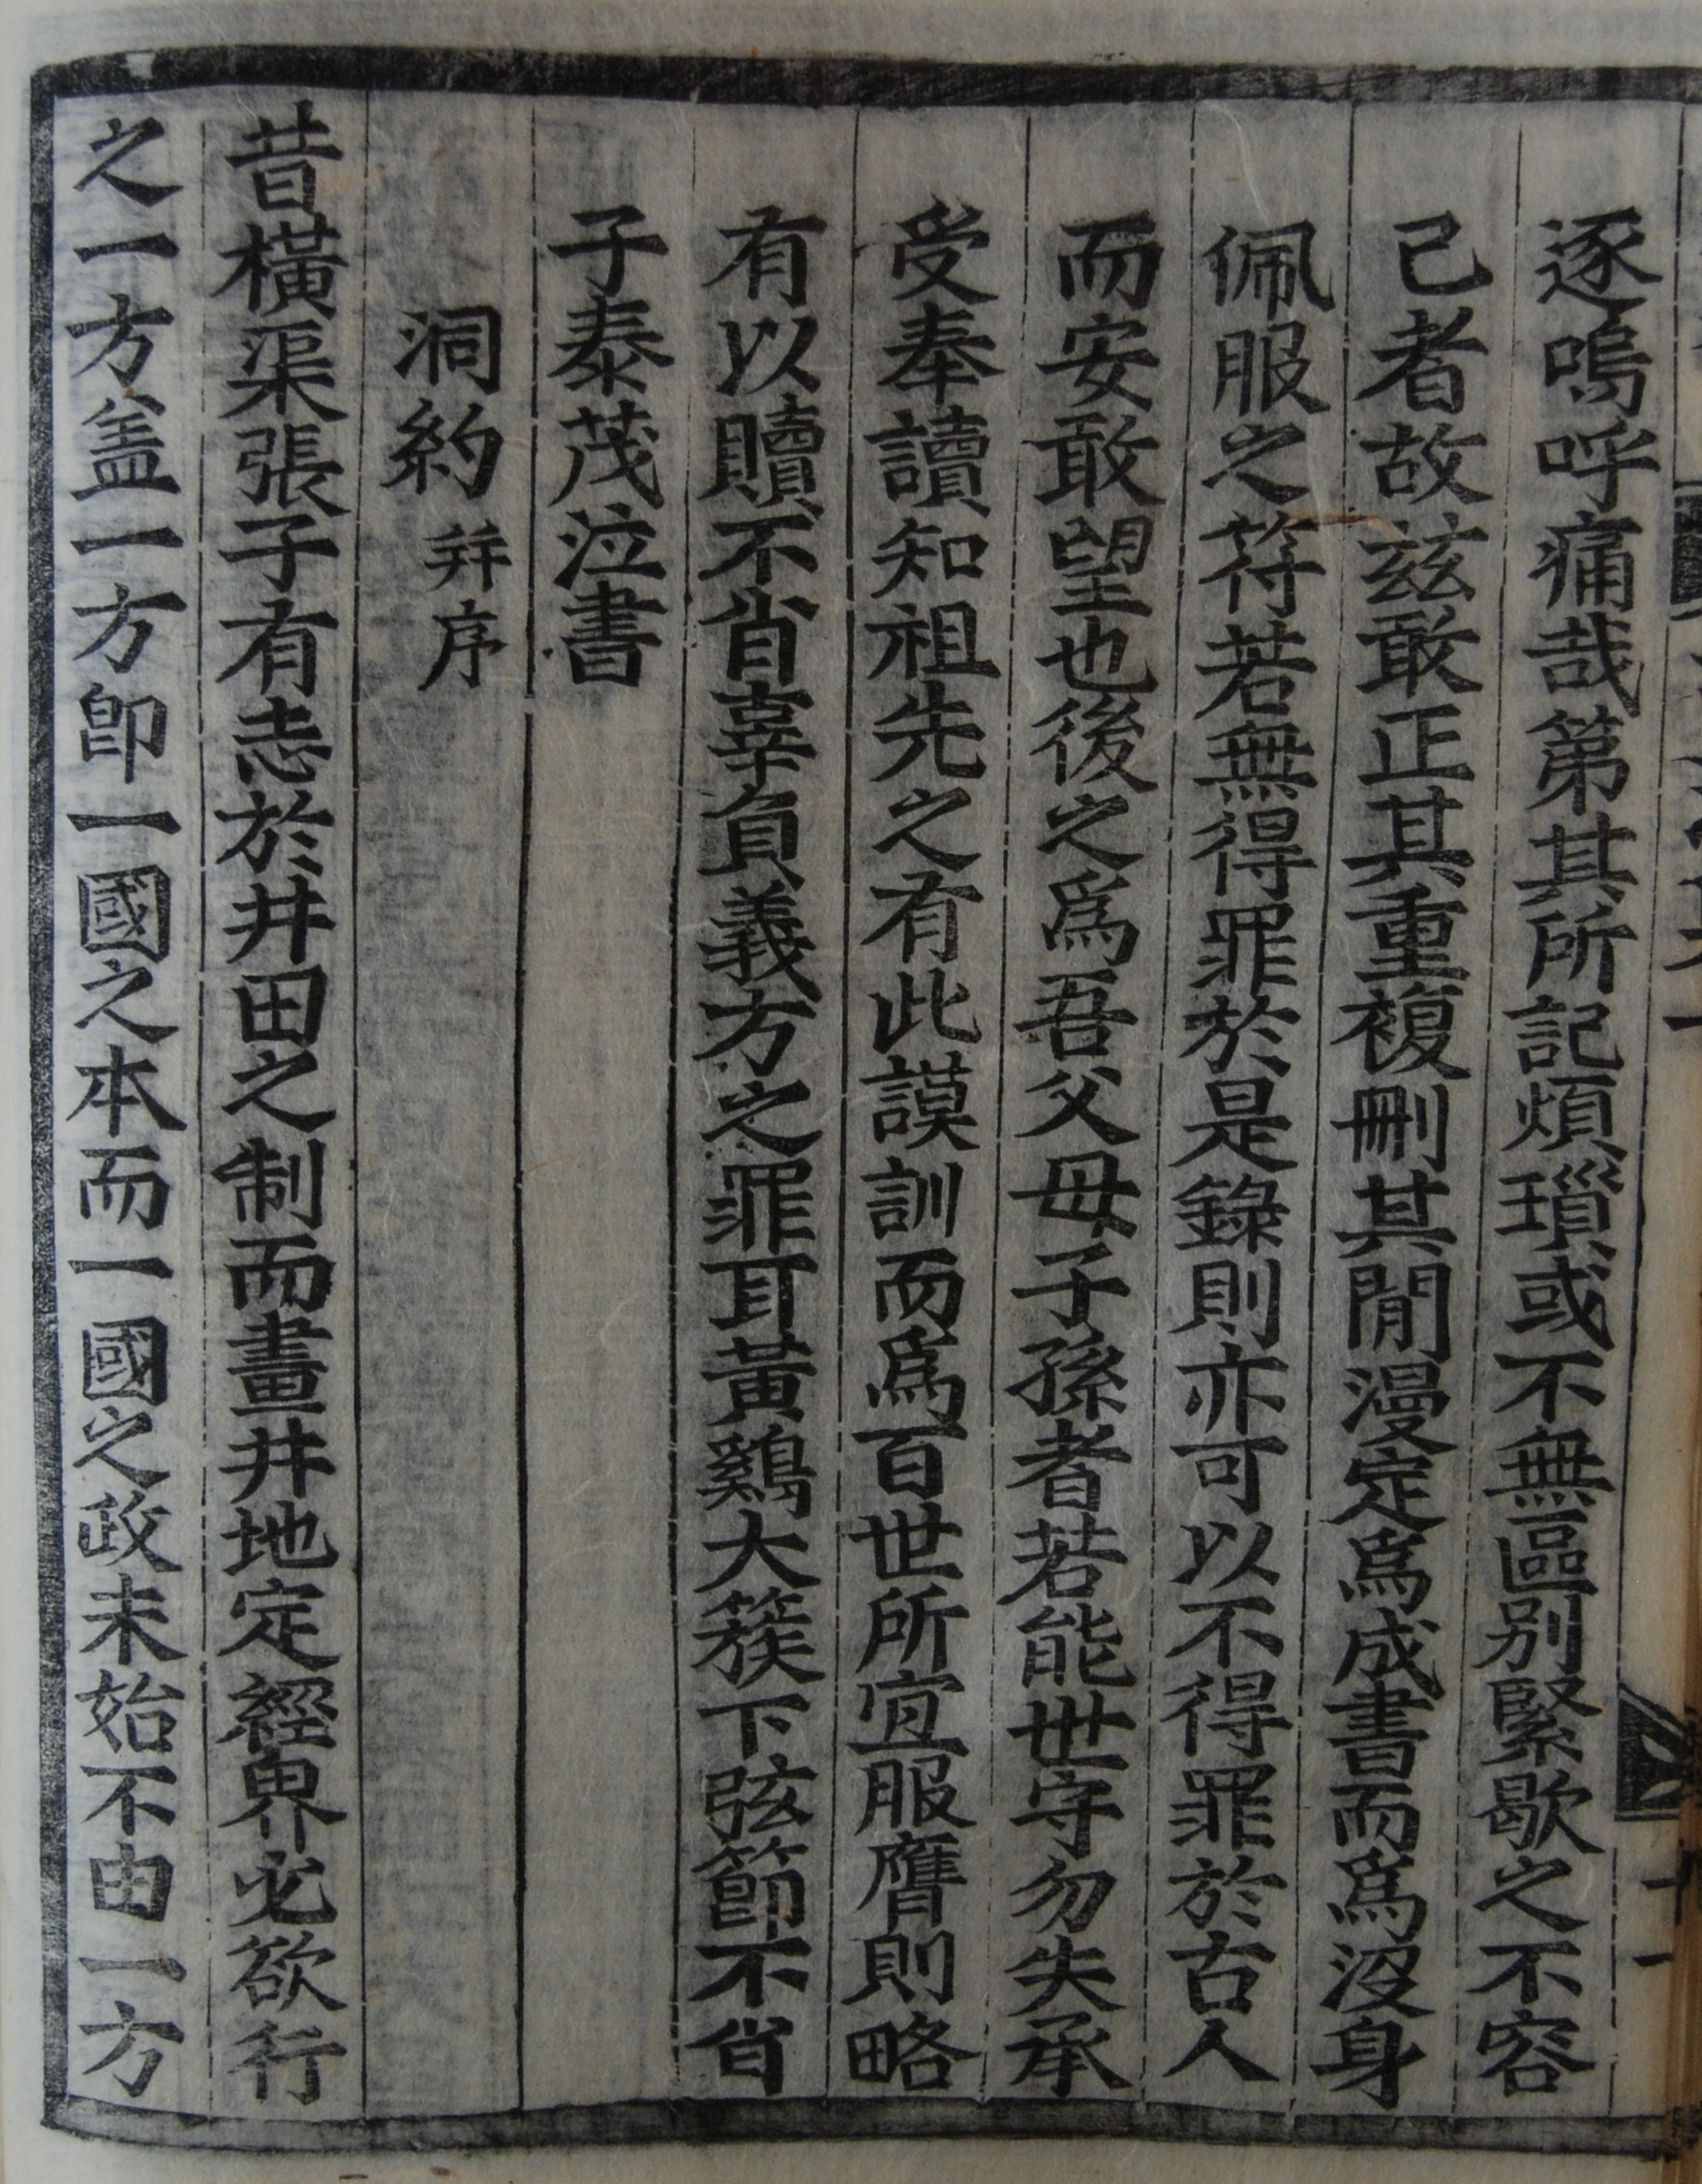 逐嗚呼痛哉第其所記煩瑣或不無區别緊歇之不容
己者故玆敢正其重複刪其閒漫定爲成書而爲沒身
佩服之符若無得罪於是錄則亦可以不得罪於古人
而安敢望也後之爲吾父母子孫者若能世守勿失承
受奉讀知祖先之有此謨訓而爲百世所宜服膺則略
有以贖不省辜負義方之罪耳黃鷄大簇下弦節不省
子泰茂泣書
洞約 幷序
昔橫渠張子有志於井田之制而畫井地定經界必欲行
之一方盖一方卽一國之本而一國之政未始不由一方
十一